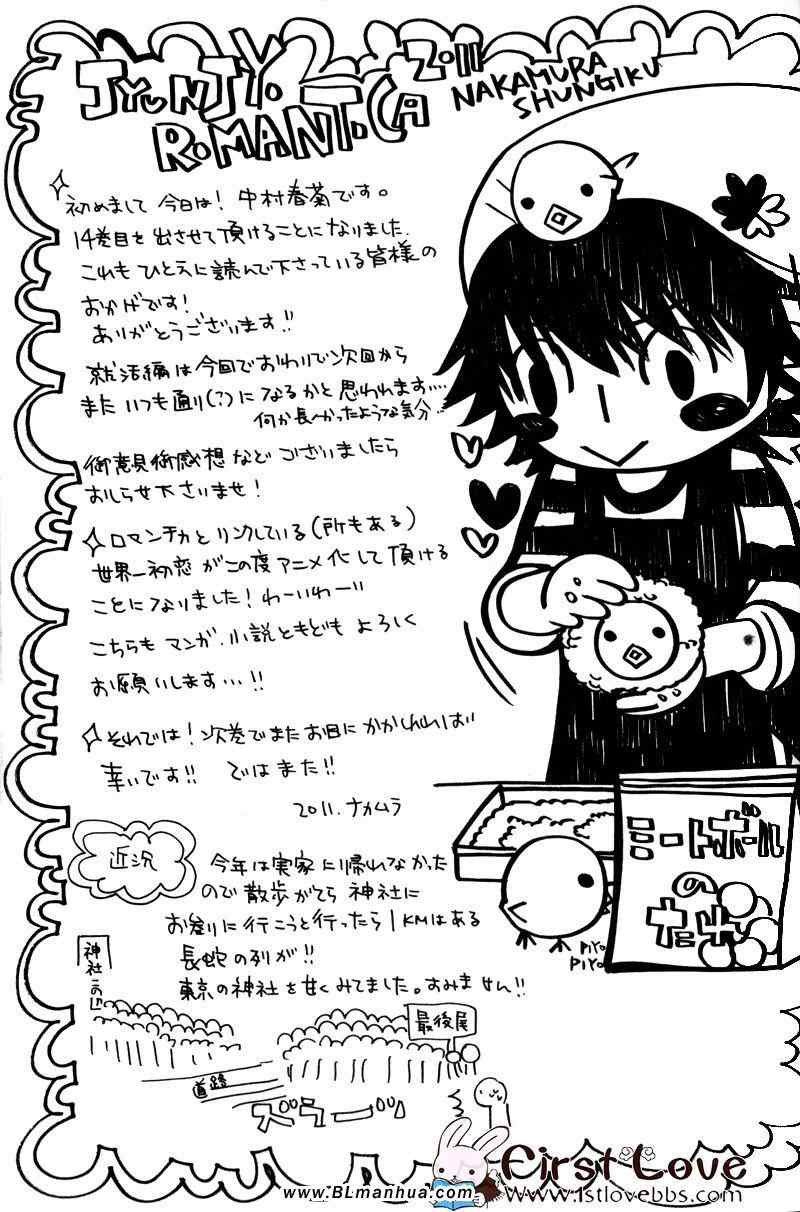 JYUNJYO
ROMANTICA
2011
NAKAMURA
SHUNGIKU
初めまして 今日は! 中村春菊です。
14巻目を出させて頂けることになりました.
これもひとえに読んで下さっている皆様の
おかげです!
ありがとうございます!!
就活編は今回でおわりで次回から
またいつも通り(?)になるかと思われます….
何か長〜かったような気分…
御意見御感想などございましたら
おしらせ下さいませ!
ロマンチカとリンクしている(所もある)
世界一初恋がこの度アニメ化して頂ける
ことになりました! わーいわーい
こちらもマンガ、小説ともどもよろしく
お願いします…!!
それでは! 次巻でまたお目にかかれれば
幸いです!! ではまた!!
2011. ナカムラ
近況
今年は実家に帰れなかった
ので散歩がてら 神社に
お参りに行こうと行ったら1KMはある
長蛇の列が!!
東京の神社を甘くみてました。すみません!!
神社
最後尾
道路
ズラーッ
ミートボール
の
たね
PIYO
PIYO
First Love
www.BLmanhua.com
www.1stlovebbs.com